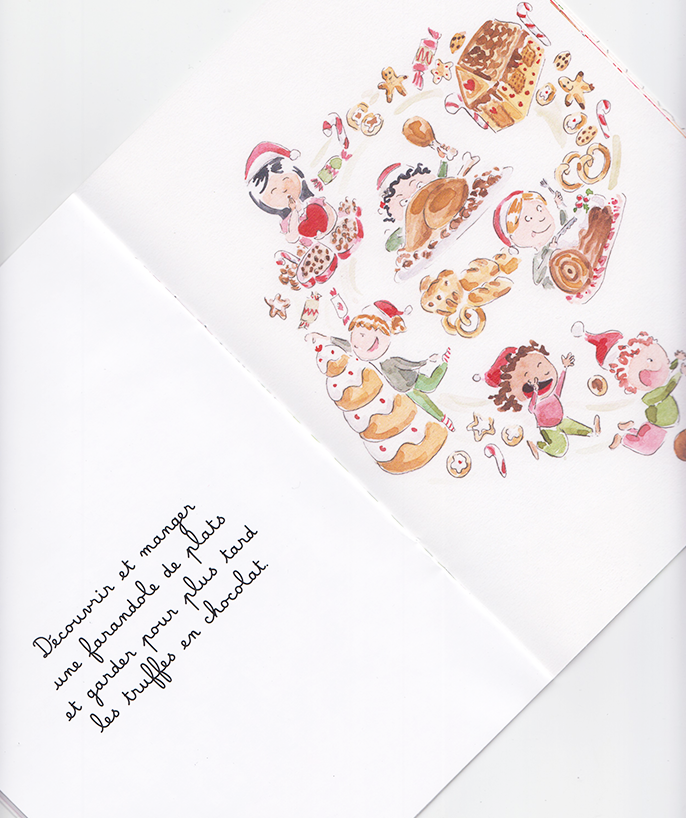 Découvrir et manger
une farandole de plats
et garder pour plus tard
les truffes en chocolat.